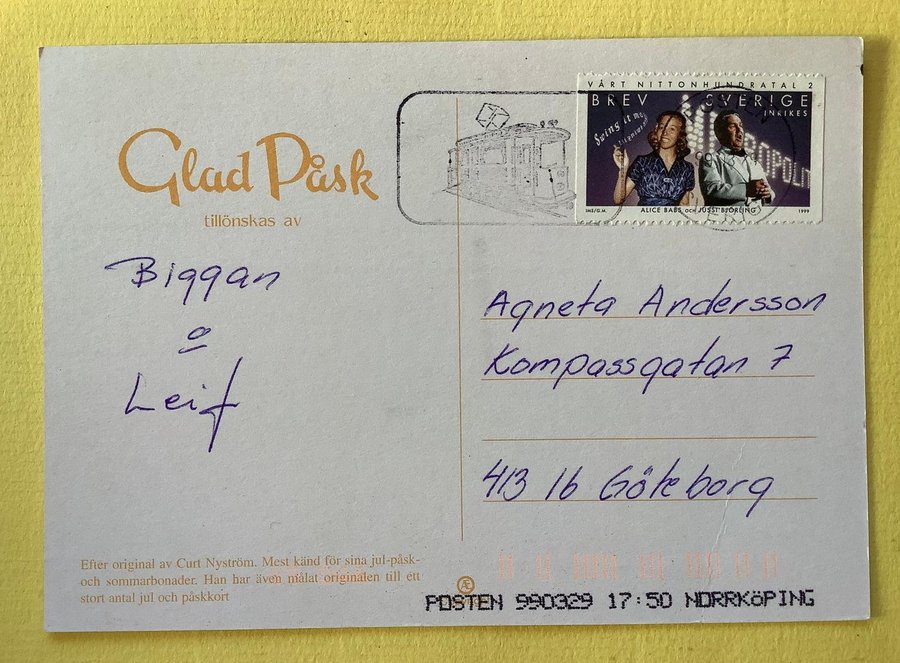 VÅRT NITTONHUNDRATAL 2
BREV SVERIGE
INRIKES
Swing it
ROPOLIT
IMB/G.M. ALICE BABS OCH JUSSI BJÖRLING 1999
Glad Påsk
tillönskas av
Biggan
o
Leif
Agneta Andersson
Kompassgatan 7
413 16 Göteborg
Efter original av Curt Nyström. Mest känd för sina jul-påsk-
och sommarbonader. Han har även målat originalen till ett
stort antal jul och påskkort
POSTEN 990329 17:50 NORRKÖPING